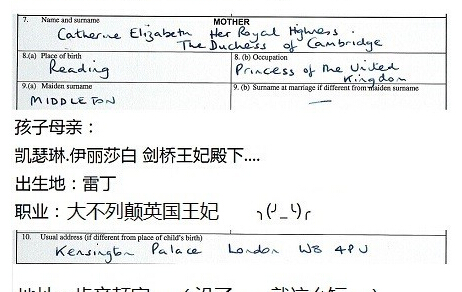 MOTHER
7. Name and surname
Catherine Elizabeth Her Royal Highness
The Duchess of Cambridge
8.(a) Place of birth
Reading
8. (b) Occupation
Princess of the United
Kingdom
9.(a) Maiden surname
MIDDLETON
9. (b) Surname at marriage if different from maiden surname
—
孩子母亲：
凯瑟琳.伊丽莎白 剑桥王妃殿下....
出生地：雷丁
职业：大不列颠英国王妃 ╮(╯_╰)╭
10. Usual address (if different from place of child's birth)
Kensington Palace London W8 4PU